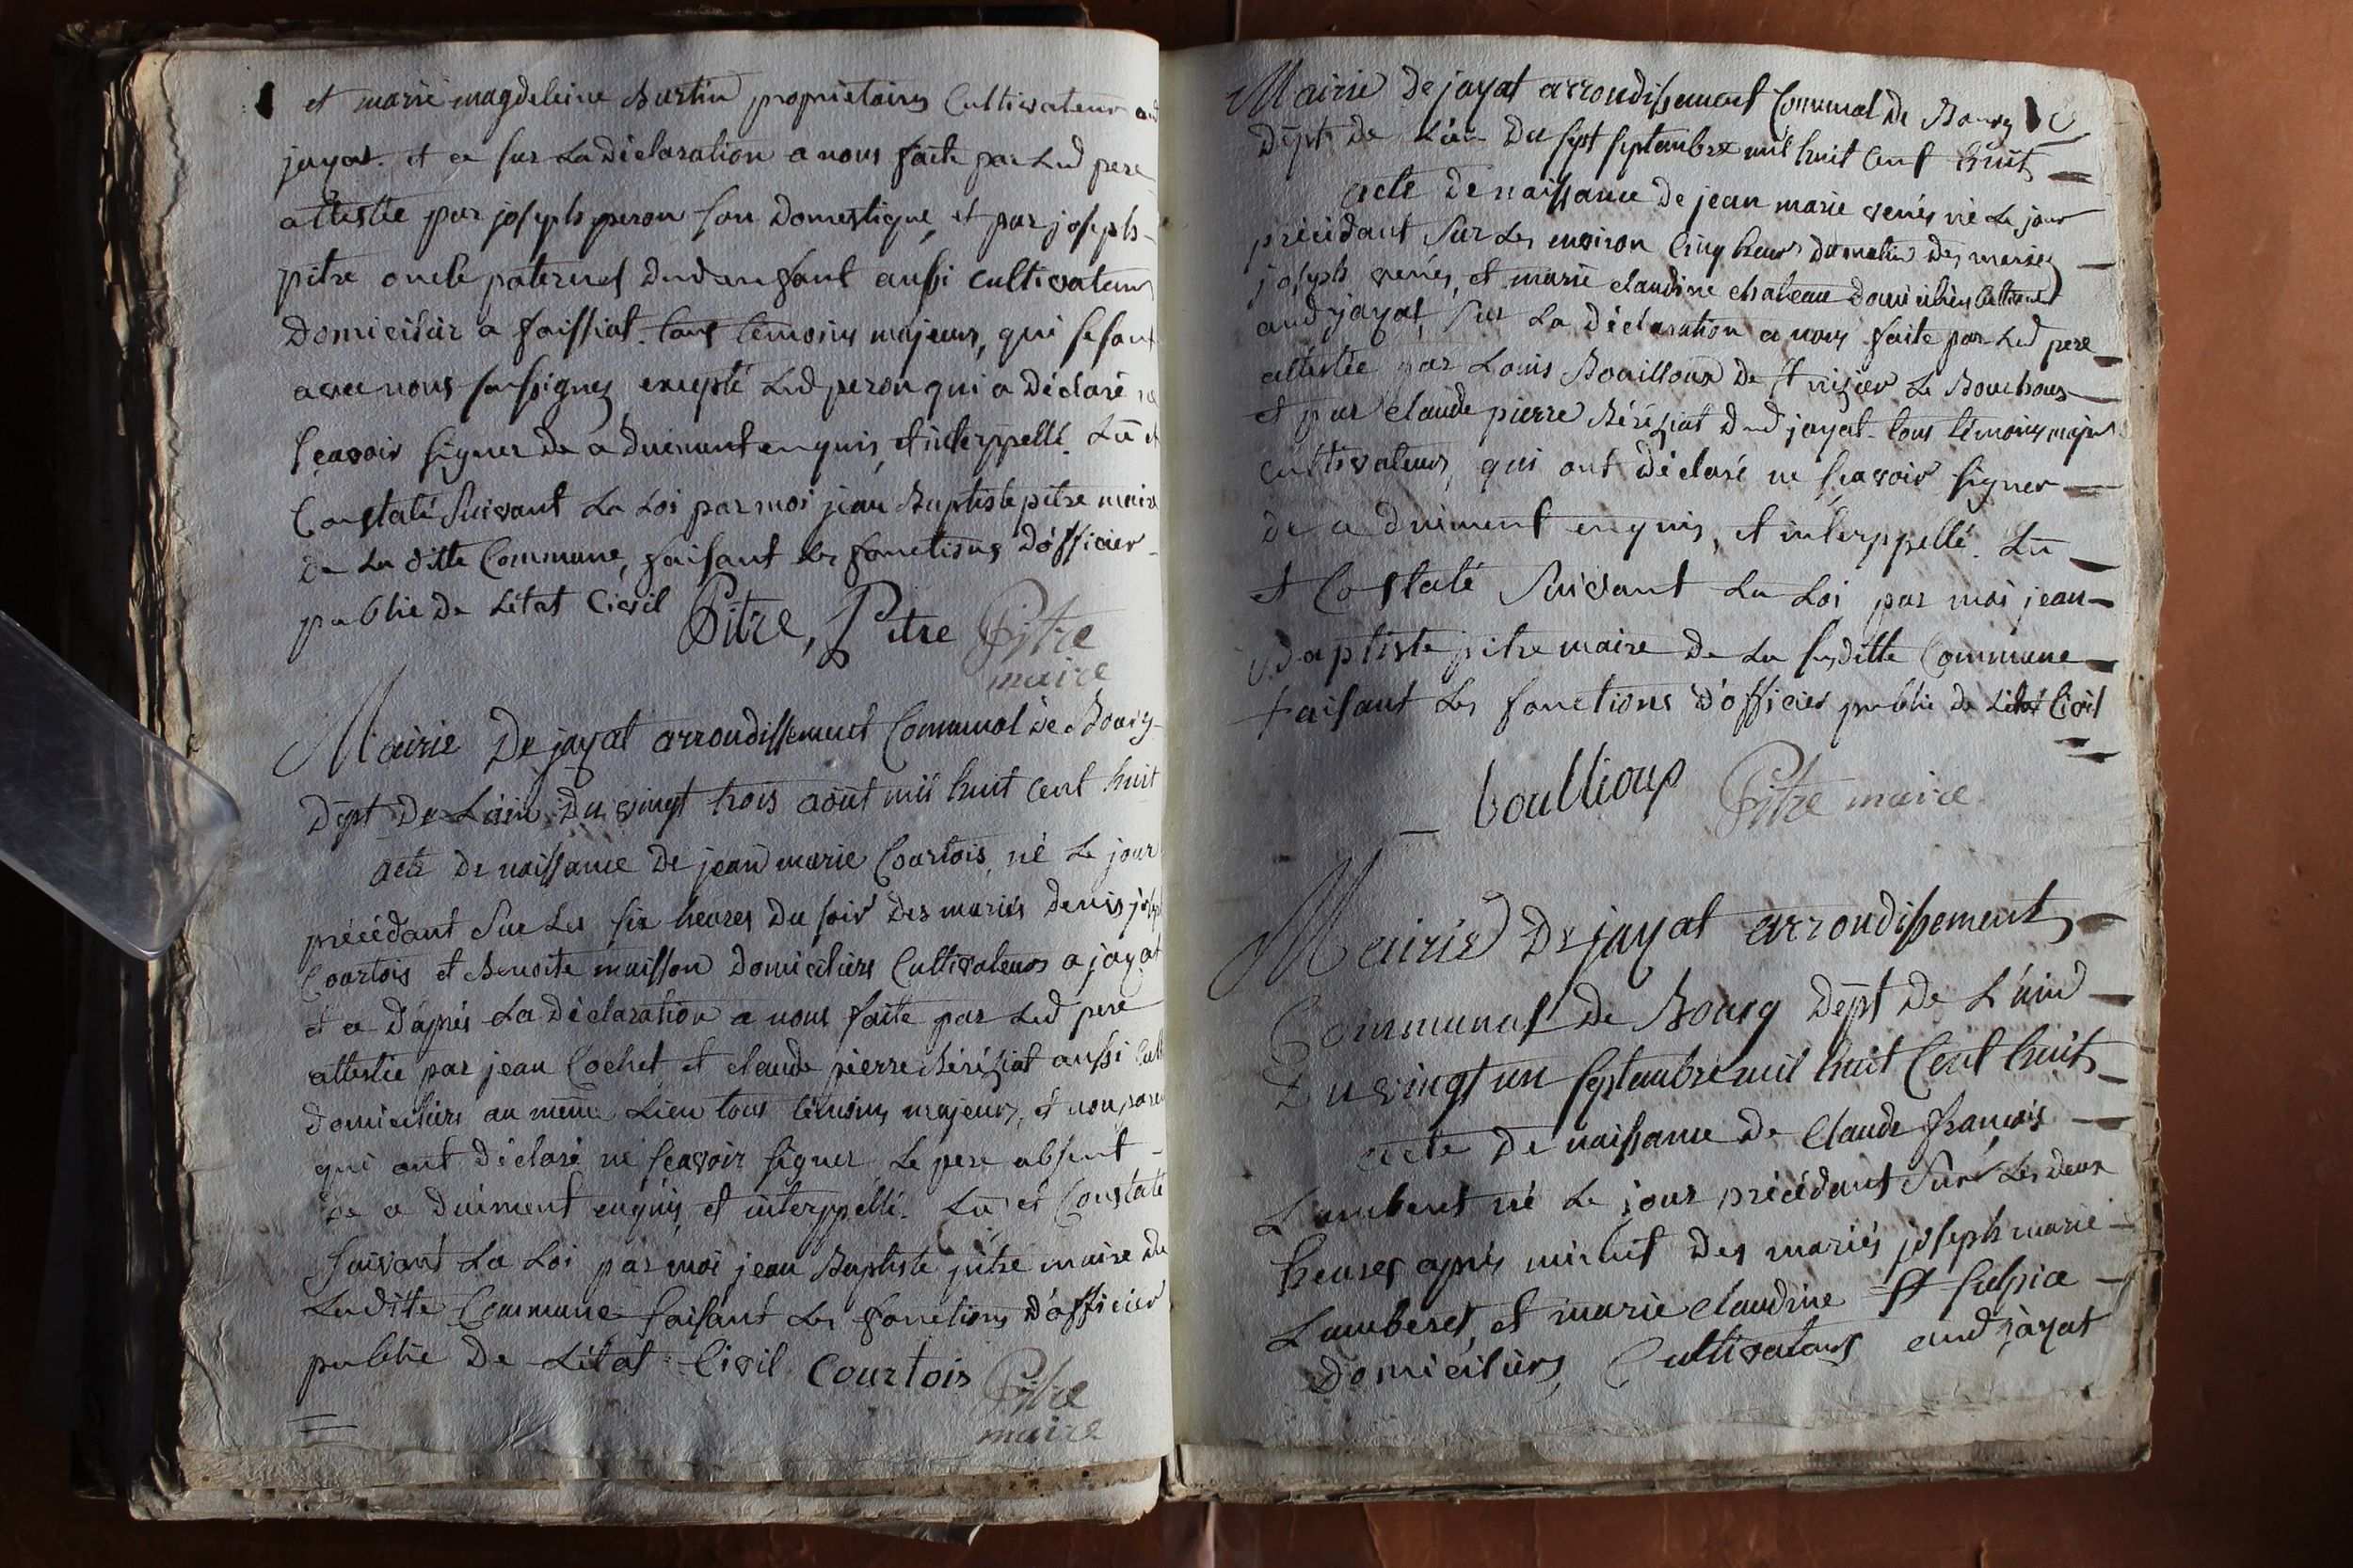 et marie magdeleine Burtin proprietaires Cultivateurs aud
jayat. et ce sur la déclaration a nous faite par Led pere
attestée par joseph peron son Domestique, et par joseph
pitre oncle paternel dud enfant aussi cultivateur
Domiciliér a foissiat. tous temoins majeurs, qui se sont
avec nous soussignez excepté Led peron qui a Déclaré ne
sçavoir signer de ce duement enquis, et interppellé. Lu et
Constaté Suivant La Loi par moi jean Baptiste pitre maire
de La ditte Commune, faisant les fonctions D'officier
public de L'état Civil Pitre, Pitre Pitre
maire
Mairie De jayat arrondissement Communal de Bourg
Dépt De L'ain Du vingt trois août mil huit cent huit
acte De naissance De jean marie Courtois, né Le jour
précédant Sur Les six heures Du soir Des mariés Denis joseph
Courtois et Benoite muisson Domiciliérs Cultivateurs a jayat
et ce D'aprés La Déclaration a nous faite par Led pere
attestée par jean Cochet et claude pierre Béréziat aussi Cult
domiciliérs au même Lieu tous témoins majeurs, et non paren
qui ont déclaré ne sçavoir signer Le pere absent
de ce duement enquis et interppellé. Lu et Constaté
suivant La Loi par moi jean Baptiste pitre maire de
Ladite Commune faisant Les fonctions D'officier
public De L'état Civil Courtois Pitre
maire
Mairie De jayat arrondissement Communal De Bourg
Dépt De L'ain Du sept septembre mil huit Cent huit
acte De naissance De jean marie venés né Le jour
précédant Sur Les environ Cinq heures Du matin Des mariés
joseph venés, et marie claudine chateau Domiciliérs Cultivateurs
aud jayat, sur La Déclaration a nous faite par Led pere
attestée par Louis Bouilloux De St nizier Le Bouchoux
et par claude pierre Béréziat Dud jayat tous témoins majeurs
cultivateurs, qui ont déclaré ne sçavoir signer
de ce duement enquis, et interppellé. Lu
et Costaté Suivant La Loi par moi jean
Baptiste pitre maire De La susditte Commune
faisant Les fonctions D'officier public de L'état Civil
boullioux Pitre maire
Mairie De jayat arrondissement
Communal De Bourg Dépt De L'ain
Du vingt un septembre mil huit Cent huit
acte De naissance De Claude françois
Lamberet né Le jour précédant Sur Les deux
heures aprés minuit Des mariés joseph marie
Lamberet, et marie claudine St sulpice
Domiciliérs, Cultivateurs aud jayat